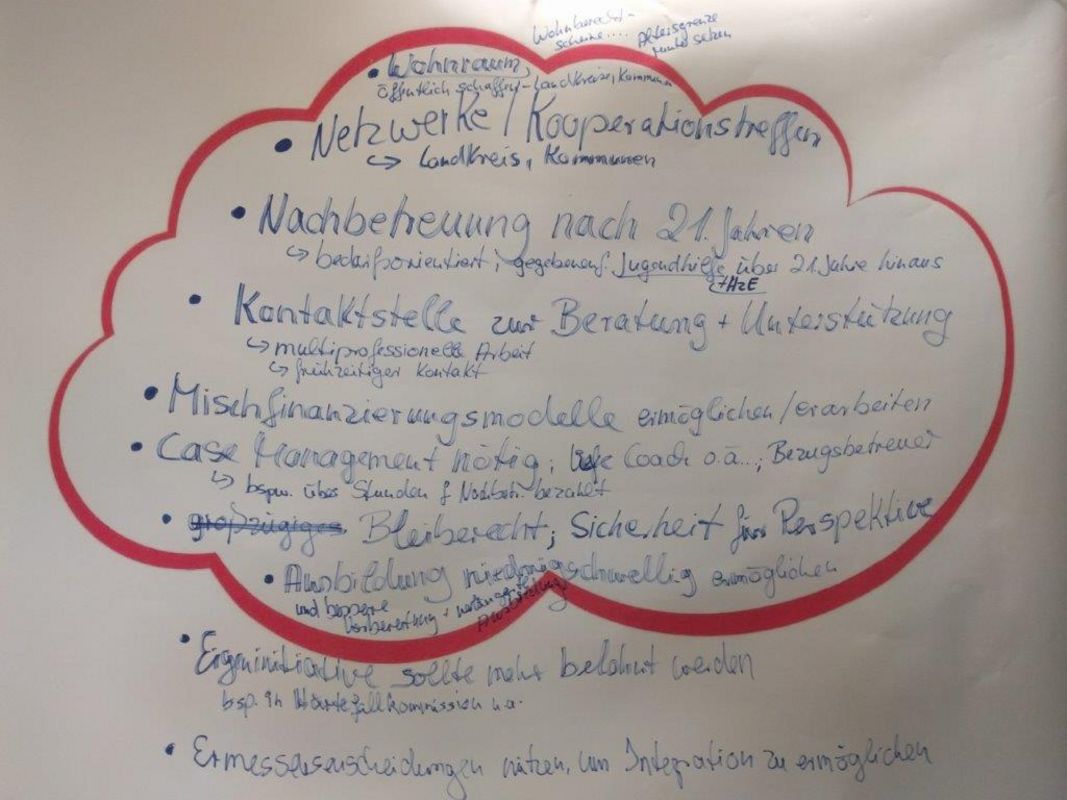 Wohnberecht-
scheine.... Altersgrenze
runter setzen
• Wohnraum,
öffentlich schaffen - Landkreise, Kommunen
• Netzwerke / Kooperationstreffen
↳ Landkreis, Kommunen
• Nachbetreuung nach 21. Jahren
↳ bedarfsorientiert; gegebenenf. Jugendhilfe über 21 Jahre hinaus
+HzE
• Kontaktstelle zur Beratung + Unterstützung
↳ multiprofessionelle Arbeit
↳ frühzeitiger Kontakt
• Mischfinanzierungsmodelle ermöglichen/erarbeiten
• Case Management nötig; Life Coach o.ä...; Bezugsbetreuer
↳ bspw. über Stunden f Nachbetr. bezahlt
• großzügiges Bleiberecht; Sicherheit für Perspektive
• Ausbildung niedrigschwellig ermöglichen
und bessere
Vorbereitung + verlängerte
Ausbildung
• Eigeninitiative sollte mehr belohnt werden
bsp. in Härtefallkommission u.a.
• Ermessensenscheidungen nützen, um Integration zu ermöglichen